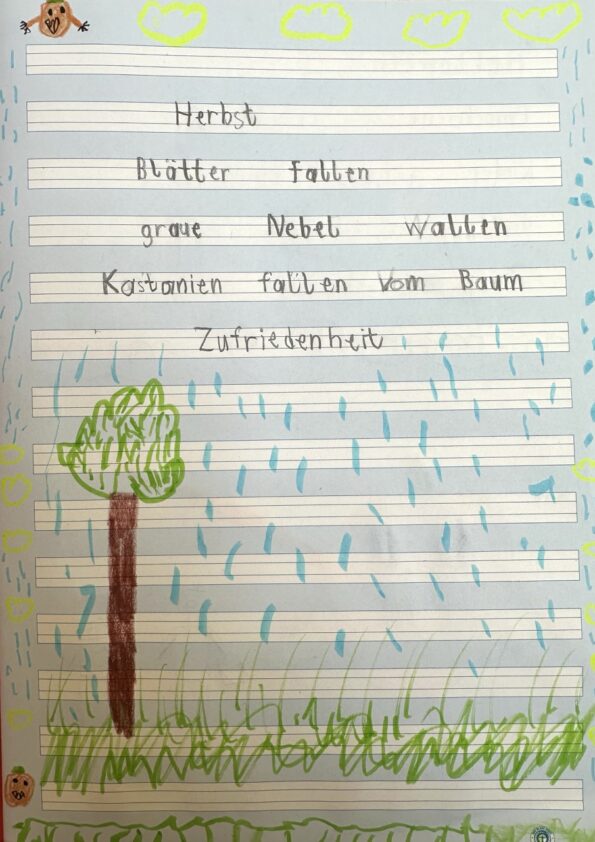 Herbst
Blätter fallen
graue Nebel wallen
Kastanien fallen vom Baum
Zufriedenheit